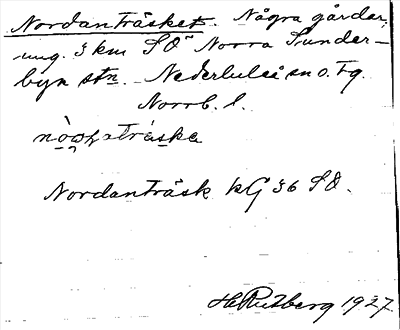 Nordanträsket. Några gårdar,
ung. 3 km SÖ Norra Sunder-
byn stn. Nederluleå sn o. tg.
Norrb. l.
Nordanträsk kG 36 SÖ.
H. Rutberg 1927